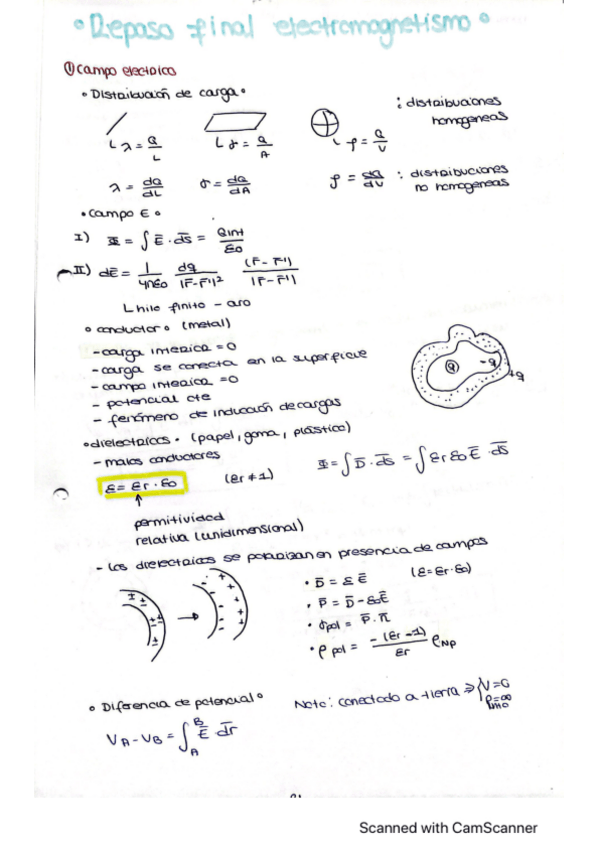 ° Repaso final electromagnetismo °
① campo electrico
° Distribución de carga °
: distribuciones homogeneas
λ = Q/L
σ = Q/A
ρ = Q/V
λ = dQ/dL
σ = dQ/dA
ρ = dQ/dV : distribuciones no homogeneas
• Campo E •
I) Φ = ∫ E̅ · ds̅ = Qint/εo
II) dE̅ = 1/4πεo dq/|r̅-r̅'|² (r̅-r̅')/|r̅-r̅'|
hilo finito - aro
° conductor ° (metal)
- carga interica = 0
- carga se conecta en la superficie
- campo interica = 0
- potencial cte
- fenómeno de inducción de cargas
Q
-q
+q
• dielectricos • (papel, goma, plástico)
- malos conductores
Φ = ∫ D̅ · ds̅ = ∫ εr εo E̅ · ds̅
ε = εr · εo (εr ≠ 1)
permitividad
relativa (unidimensional)
- los dielectricos se polarizan en presencia de campos
• D̅ = ε E̅ (ε = εr · εo)
• P̅ = D̅ - εo E̅
• σpol = P̅ · n̅
• ρpol = -(εr - 1)/εr ρNp
° Diferencia de potencial °
Nota: conectado a tierra ⇒ { V = 0
VA - VB = ∫ₐᴮ E̅ dr̅
Scanned with CamScanner